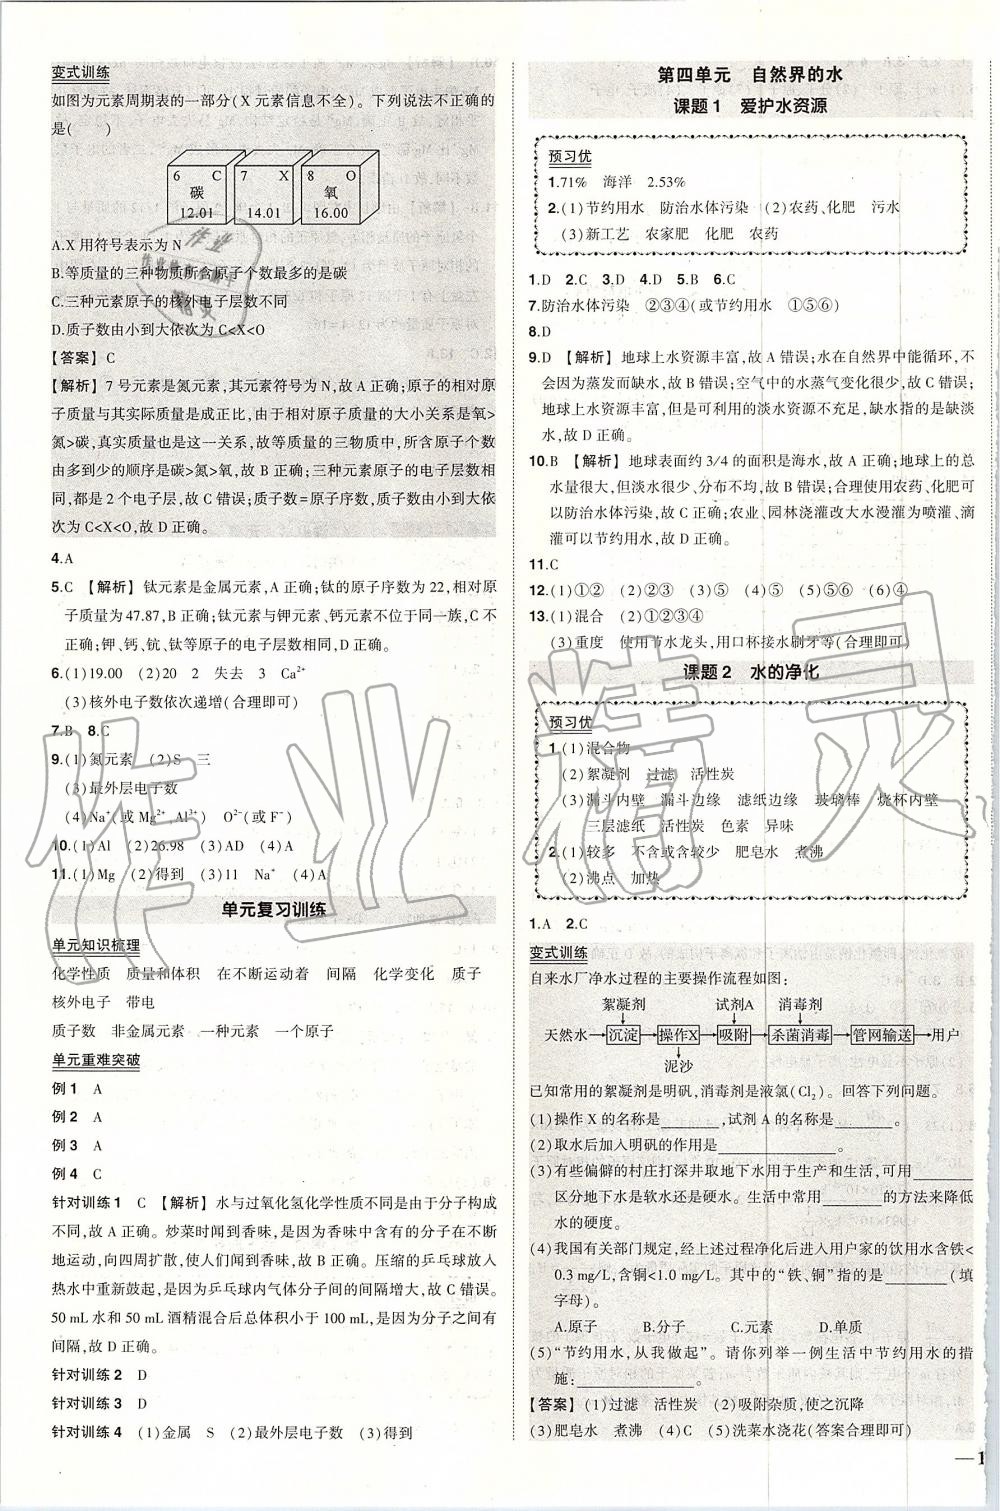 变式训练
如图为元素周期表的一部分(X 元素信息不全)。下列说法不正确的
是(　　)
6 C
碳
12.01
7 X
14.01
8 O
氧
16.00
A.X 用符号表示为 N
B.等质量的三种物质所含原子个数最多的是碳
C.三种元素原子的核外电子层数不同
D.质子数由小到大依次为 C<X<O
【答案】 C
【解析】 7 号元素是氮元素,其元素符号为 N,故 A 正确;原子的相对原
子质量与其实际质量是成正比,由于相对原子质量的大小关系是氧>
氮>碳,真实质量也是这一关系,故等质量的三物质中,所含原子个数
由多到少的顺序是碳>氮>氧,故 B 正确;三种元素原子的电子层数相
同,都是 2 个电子层,故 C 错误;质子数=原子序数,质子数由小到大依
次为 C<X<O,故 D 正确。
4.A
5.C 【解析】 钛元素是金属元素,A 正确;钛的原子序数为 22,相对原
子质量为 47.87,B 正确;钛元素与钾元素、钙元素不位于同一族,C 不
正确;钾、钙、钪、钛等原子的电子层数相同,D 正确。
6.(1)19.00 (2)20 2 失去 3 Ca²⁺
(3)核外电子数依次递增(合理即可)
7.B 8.C
9.(1)氮元素 (2)S 三
(3)最外层电子数
(4)Na⁺(或 Mg²⁺、Al³⁺) O²⁻(或 F⁻)
10.(1)Al (2)26.98 (3)AD (4)A
11.(1)Mg (2)得到 (3)11 Na⁺ (4)A
单元复习训练
单元知识梳理
化学性质 质量和体积 在不断运动着 间隔 化学变化 质子
核外电子 带电
质子数 非金属元素 一种元素 一个原子
单元重难突破
例 1 A
例 2 A
例 3 A
例 4 C
针对训练 1 C 【解析】 水与过氧化氢化学性质不同是由于分子构成
不同,故 A 正确。炒菜时闻到香味,是香味中含有的分子在不断
地运动,向四周扩散,使人们闻到香味,故 B 正确。压缩的乒乓球放入
热水中重新鼓起,是乒乓球内气体分子间的间隔增大,故 C 错误。
50 mL 水和 50 mL 酒精混合后总体积小于 100 mL,是因为分子之间有
间隔,故 D 正确。
针对训练 2 D
针对训练 3 D
针对训练 4 (1)金属 S (2)最外层电子数 (3)得到
第四单元 自然界的水
课题 1 爱护水资源
预习优
1.71% 海洋 2.53%
2.(1)节约用水 防治水体污染 (2)农药、化肥 污水
(3)新工艺 农家肥 化肥 农药
1.D 2.C 3.D 4.D 5.B 6.C
7.防治水体污染 ②③④(或节约用水 ①⑤⑥)
8.D
9.D 【解析】 地球上水资源丰富,故 A 错误;水在自然界中能循环,不
会因为蒸发而缺水,故 B 错误;空气中的水蒸气变化很少,故 C 错误;
地球上水资源丰富,但是可利用的淡水资源不充足,缺水指的是缺淡
水,故 D 正确。
10.B 【解析】 地球表面约 3/4 的面积是海水,故 A 正确;地球上的总
水量很大,但淡水很少、分布不均,故 B 错误;合理使用农药、化肥可
以防治水体污染,故 C 正确;农业、园林浇灌改大水漫灌为喷灌、滴
灌可以节约用水,故 D 正确。
11.C
12.(1)①② (2)②③ (3)⑤ (4)⑤ (5)⑤ (6)④
13.(1)混合 (2)①②③④
(3)重度 使用节水龙头,用口杯接水刷牙等(合理即可)
课题 2 水的净化
预习优
1.(1)混合物
(2)絮凝剂 过滤 活性炭
(3)漏斗内壁 漏斗边缘 滤纸边缘 玻璃棒 烧杯内壁
三层滤纸 活性炭 色素 异味
2.(1)较多 不含或含较少 肥皂水 煮沸
(2)沸点 加热
1.A 2.C
变式训练
自来水厂净水过程的主要操作流程如图:
絮凝剂 试剂A 消毒剂
天然水→沉淀→操作X→吸附→杀菌消毒→管网输送→用户
泥沙
已知常用的絮凝剂是明矾,消毒剂是液氯(Cl₂)。回答下列问题。
(1)操作 X 的名称是________,试剂 A 的名称是________。
(2)取水后加入明矾的作用是________。
(3)有些偏僻的村庄打深井取地下水用于生产和生活,可用________
区分地下水是软水还是硬水。生活中常用________的方法来降低
水的硬度。
(4)我国有关部门规定,经上述过程净化后进入用户家的饮用水含铁<
0.3 mg/L,含铜<1.0 mg/L。其中的“铁、铜”指的是________(填
字母)。
A.原子 B.分子 C.元素 D.单质
(5)“节约用水,从我做起”。请你列举一例生活中节约用水的措
施:________。
【答案】 (1)过滤 活性炭 (2)吸附杂质,使之沉降
(3)肥皂水 煮沸 (4)C (5)洗菜水浇花(答案合理即可)
— 1
作业精灵